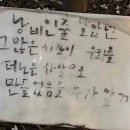 낭비인줄 알았던
그 많은 시간이 우리를
더 나은 사람으로
만들었음을